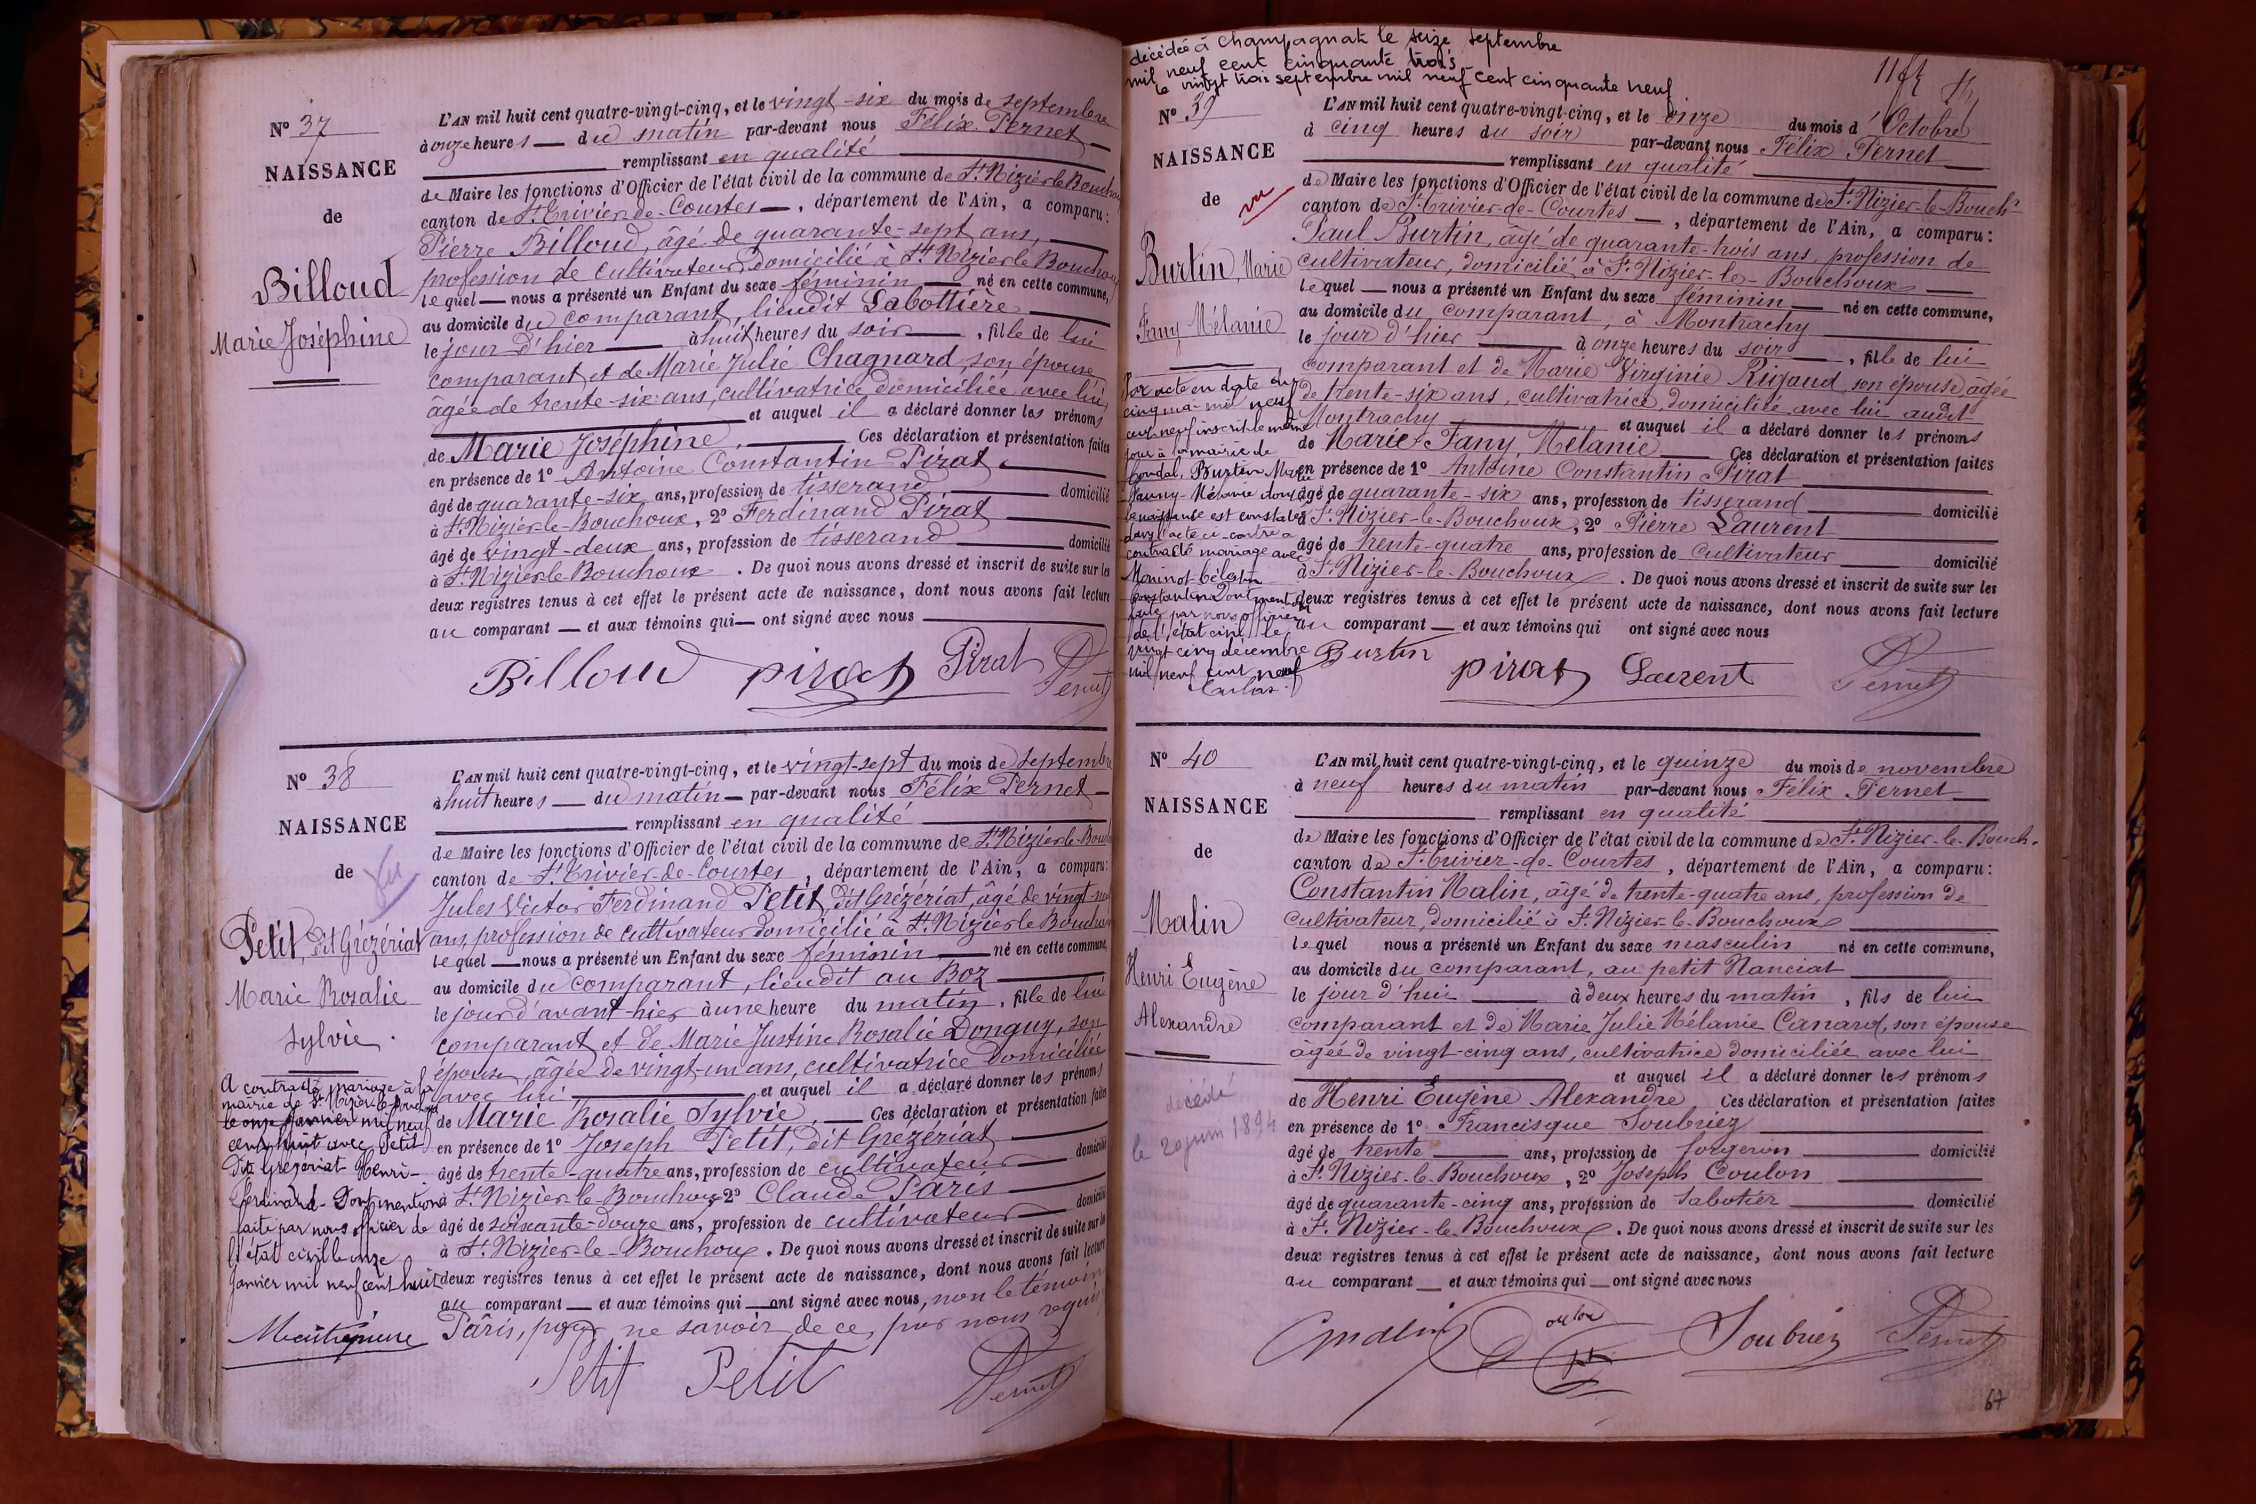 Nº 37
NAISSANCE
de
Billoud
Marie Joséphine
L'AN mil huit cent quatre-vingt-cinq, et le vingt-six du mois de septembre
à onze heures du matin par-devant nous Félix Pernet
remplissant en qualité
de Maire les fonctions d'Officier de l'état civil de la commune de St Nizier-le-Bouchoux
canton de St Trivier-de-Courtes, département de l'Ain, a comparu:
Pierre Billoud, âgé de quarante-sept ans,
profession de cultivateur domicilié à St Nizier-le-Bouchoux
lequel nous a présenté un Enfant du sexe féminin né en cette commune,
au domicile du comparant, lieudit Labottière
le jour d'hier à huit heures du soir, fille de lui
comparant et de Marie Julie Chagnard, son épouse
âgée de trente-six ans, cultivatrice domiciliée avec lui
et auquel il a déclaré donner les prénoms
de Marie Joséphine, Ces déclaration et présentation faites
en présence de 1º Antoine Constantin Pirat
âgé de quarante-six ans, profession de tisserand domicilié
à St Nizier-le-Bouchoux, 2º Ferdinand Pirat
âgé de vingt-deux ans, profession de tisserand domicilié
à St Nizier-le-Bouchoux. De quoi nous avons dressé et inscrit de suite sur les
deux registres tenus à cet effet le présent acte de naissance, dont nous avons fait lecture
au comparant et aux témoins qui ont signé avec nous
Billoud Pirat Pirat Pernet
Nº 38
NAISSANCE
de
Vu
Petit, dit Grézériat
Marie Rosalie
Sylvie.
A contracté mariage à la
mairie de St Nizier-le-Bouchoux
le onze janvier mil neuf
cent huit avec Petit
dit Grézériat Henri-
Ferdinand - Dont mention
faite par nous officier de
l'état civil le onze
Janvier mil neuf cent huit
L'AN mil huit cent quatre-vingt-cinq, et le vingt-sept du mois de septembre
à huit heures du matin par-devant nous Félix Pernet
remplissant en qualité
de Maire les fonctions d'Officier de l'état civil de la commune de St Nizier-le-Bouch
canton de St Trivier-de-Courtes, département de l'Ain, a comparu:
Jules Victor Ferdinand Petit, dit Grézériat, âgé de vingt-
ans, profession de cultivateur domicilié à St Nizier-le-Bouchoux
lequel nous a présenté un Enfant du sexe féminin né en cette commune,
au domicile du comparant, lieudit au Boz
le jour d'avant-hier à une heure du matin, fille de lui
comparant et de Marie Justine Rosalie Donguy, son
épouse, âgée de vingt-un ans, cultivatrice domiciliée
avec lui et auquel il a déclaré donner les prénoms
de Marie Rosalie Sylvie, Ces déclaration et présentation faites
en présence de 1º Joseph Petit, dit Grézériat
âgé de trente-quatre ans, profession de cultivateur domicilié
à St Nizier-le-Bouchoux 2º Claude Pâris
âgé de soixante-douze ans, profession de cultivateur domicilié
à St Nizier-le-Bouchoux. De quoi nous avons dressé et inscrit de suite sur les
deux registres tenus à cet effet le présent acte de naissance, dont nous avons fait lecture
au comparant et aux témoins qui ont signé avec nous, non le témoin
Pâris, pour ne savoir de ce, par nous requis
Petit Petit Pernet
décédée à Champagnat le seize septembre
mil neuf cent cinquante trois
le vingt trois septembre mil neuf cent cinquante neuf
Nº 39
NAISSANCE
de
vu
Burtin, Marie
Fany Mélanie
Par acte en date du
cinq mai mil neuf
cent neuf inscrit le même
jour à la mairie de
Condal, Burtin Marie
Fanny-Mélanie dont
la naissance est constatée
dans l'acte ci-contre a
contracté mariage avec
Constantin Dont mention
faite par nous officier
de l'état civil le
vingt cinq décembre
mil neuf cent neuf
L'AN mil huit cent quatre-vingt-cinq, et le onze du mois d'Octobre
à cinq heures du soir par-devant nous Félix Pernet
remplissant en qualité
de Maire les fonctions d'Officier de l'état civil de la commune de St Nizier-le-Bouch
canton de St Trivier-de-Courtes, département de l'Ain, a comparu:
Paul Burtin, âgé de quarante-trois ans, profession de
cultivateur, domicilié à St Nizier-le-Bouchoux
lequel nous a présenté un Enfant du sexe féminin né en cette commune,
au domicile du comparant, à Montrachy
le jour d'hier à onze heures du soir, fille de lui
comparant et de Marie Virginie Rigaud, son épouse, âgée
de trente-six ans, cultivatrice, domiciliée avec lui audit
Montrachy et auquel il a déclaré donner les prénoms
de Marie Fany Mélanie Ces déclaration et présentation faites
en présence de 1º Antoine Constantin Pirat
âgé de quarante-six ans, profession de tisserand domicilié
à St Nizier-le-Bouchoux, 2º Pierre Laurent
âgé de trente-quatre ans, profession de cultivateur domicilié
à St Nizier-le-Bouchoux. De quoi nous avons dressé et inscrit de suite sur les
deux registres tenus à cet effet le présent acte de naissance, dont nous avons fait lecture
au comparant et aux témoins qui ont signé avec nous
Burtin Pirat Laurent Pernet
Nº 40
NAISSANCE
de
Malin
Henri Eugène
Alexandre
décédé
le 20 juin 1894
L'AN mil huit cent quatre-vingt-cinq, et le quinze du mois de novembre
à neuf heures du matin par-devant nous Félix Pernet
remplissant en qualité
de Maire les fonctions d'Officier de l'état civil de la commune de St Nizier-le-Bouch.
canton de St Trivier-de-Courtes, département de l'Ain, a comparu:
Constantin Malin, âgé de trente-quatre ans, profession de
cultivateur, domicilié à St Nizier-le-Bouchoux
lequel nous a présenté un Enfant du sexe masculin né en cette commune,
au domicile du comparant, au petit Nanciat
le jour d'hui à deux heures du matin, fils de lui
comparant et de Marie Julie Mélanie Canard, son épouse
âgée de vingt-cinq ans, cultivatrice domiciliée avec lui
et auquel il a déclaré donner les prénoms
de Henri Eugène Alexandre Ces déclaration et présentation faites
en présence de 1º Francisque Soubriez
âgé de trente ans, profession de forgeron domicilié
à St Nizier-le-Bouchoux, 2º Joseph Coulon
âgé de quarante-cinq ans, profession de sabotier domicilié
à St Nizier-le-Bouchoux. De quoi nous avons dressé et inscrit de suite sur les
deux registres tenus à cet effet le présent acte de naissance, dont nous avons fait lecture
au comparant et aux témoins qui ont signé avec nous
Malin Coulon Soubriez Pernet
67